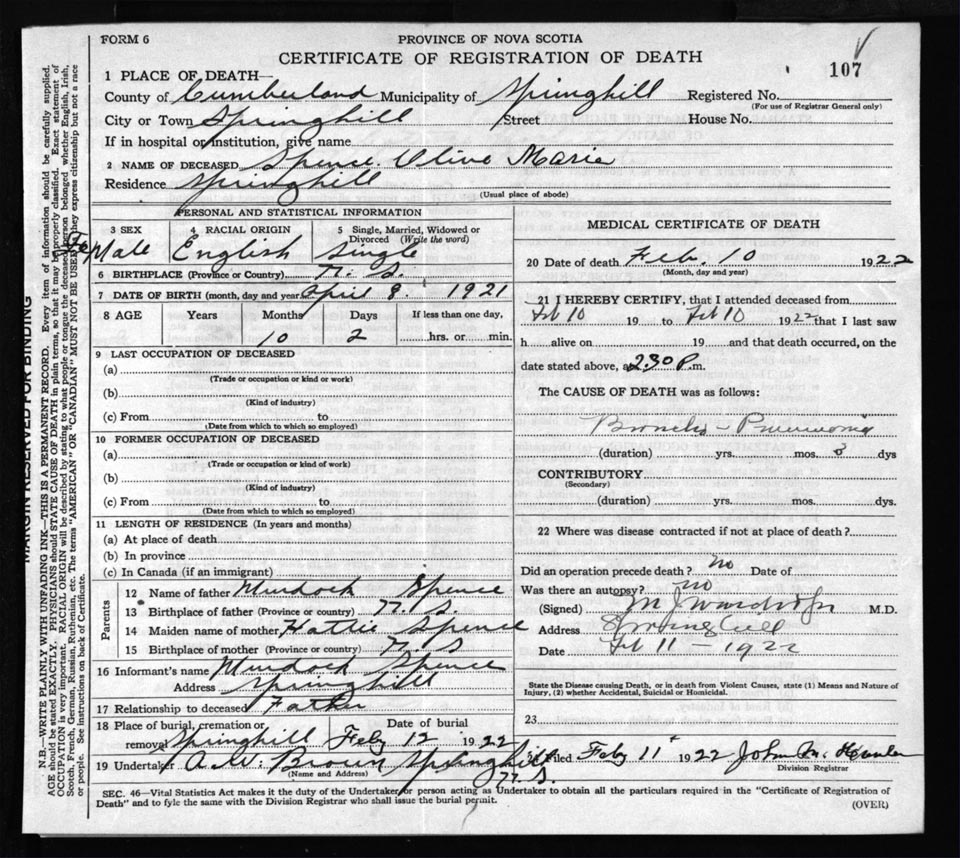 FORM 6
PROVINCE OF NOVA SCOTIA
CERTIFICATE OF REGISTRATION OF DEATH
107
1 PLACE OF DEATH—
County of Cumberland Municipality of Springhill Registered No.
(For use of Registrar General only)
City or Town Springhill Street House No.
If in hospital or institution, give name
2 NAME OF DECEASED Spence Olive Marie
Residence Springhill
(Usual place of abode)
PERSONAL AND STATISTICAL INFORMATION
3 SEX 4 RACIAL ORIGIN 5 Single, Married, Widowed or Divorced (Write the word)
FeMale English Single
6 BIRTHPLACE (Province or Country) N. S.
7 DATE OF BIRTH (month, day and year) April 8. 1921
8 AGE Years Months Days If less than one day,
10 2 hrs. or min.
9 LAST OCCUPATION OF DECEASED
(a)
(Trade or occupation or kind or work)
(b)
(Kind of industry)
(c) From to
(Date from which to which so employed)
10 FORMER OCCUPATION OF DECEASED
(a)
(Trade or occupation or kind of work)
(b)
(Kind of industry)
(c) From to
(Date from which to which so employed)
11 LENGTH OF RESIDENCE (In years and months)
(a) At place of death
(b) In province
(c) In Canada (if an immigrant)
Parents
12 Name of father Murdock Spence
13 Birthplace of father (Province or country) N. S.
14 Maiden name of mother Hattie Spence
15 Birthplace of mother (Province or country) N. S
16 Informant's name Murdock Spence
Address Springhill
17 Relationship to deceased Father
18 Place of burial, cremation or removal Springhill Date of burial Feby 12 1922
19 Undertaker A. W. Brown Springhill
N. S.
(Name and Address)
MEDICAL CERTIFICATE OF DEATH
20 Date of death Feb. 10 1922
(Month, day and year)
21 I HEREBY CERTIFY, that I attended deceased from
Feb 10 19 to Feb 10 1922 that I last saw
h alive on 19 and that death occurred, on the
date stated above, at 2.30 P. m.
The CAUSE OF DEATH was as follows:
Broncho - Pneumonia
(duration) yrs. mos. dys
CONTRIBUTORY
(Secondary)
(duration) yrs. mos. dys.
22 Where was disease contracted if not at place of death?
Did an operation precede death? no Date of
Was there an autopsy? no
(Signed) M.D.
Address Springhill
Date Feb 11 - 1922
State the Disease causing Death, or in death from Violent Causes, state (1) Means and Nature of
Injury, (2) whether Accidental, Suicidal or Homicidal.
23
Filed Feby 11 1922 John M.
Division Registrar
SEC. 46—Vital Statistics Act makes it duty of the Undertaker or person acting as Undertaker to obtain all the particulars required in the "Certificate of Registration of
Death" and to fyle the same with the Division Registrar who shall issue the burial permit.
(OVER)
MARGIN RESERVED FOR BINDING
N.B.—WRITE PLAINLY WITH UNFADING INK—THIS IS A PERMANENT RECORD. Every item of information should be carefully supplied.
AGE should be stated EXACTLY. PHYSICIANS should STATE CAUSE OF DEATH in plain terms, so that it may be properly classified. Exact statement of
OCCUPATION is very important. RACIAL ORIGIN will be described by stating to what people or tongue the deceased person belonged whether English, Irish,
Scotch, French, German, Russian, Ruthenian, etc. The terms "AMERICAN" OR "CANADIAN" MUST NOT BE USED they express citizenship but not a race
or people. See instructions on back of Certificate.